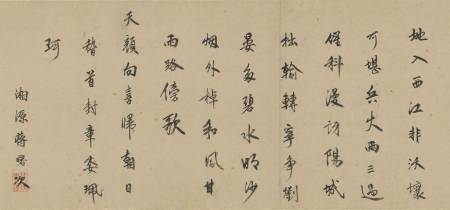 地入西江非沃壤
可堪兵火兩三過
催科漫訪陽城
拙輸轉寧爭劉
晏多碧水明沙
烟外棹和風甘
雨路傍歌
天顏向喜歸朝日
稽首封章委珮
珂
湘源蔣曙次